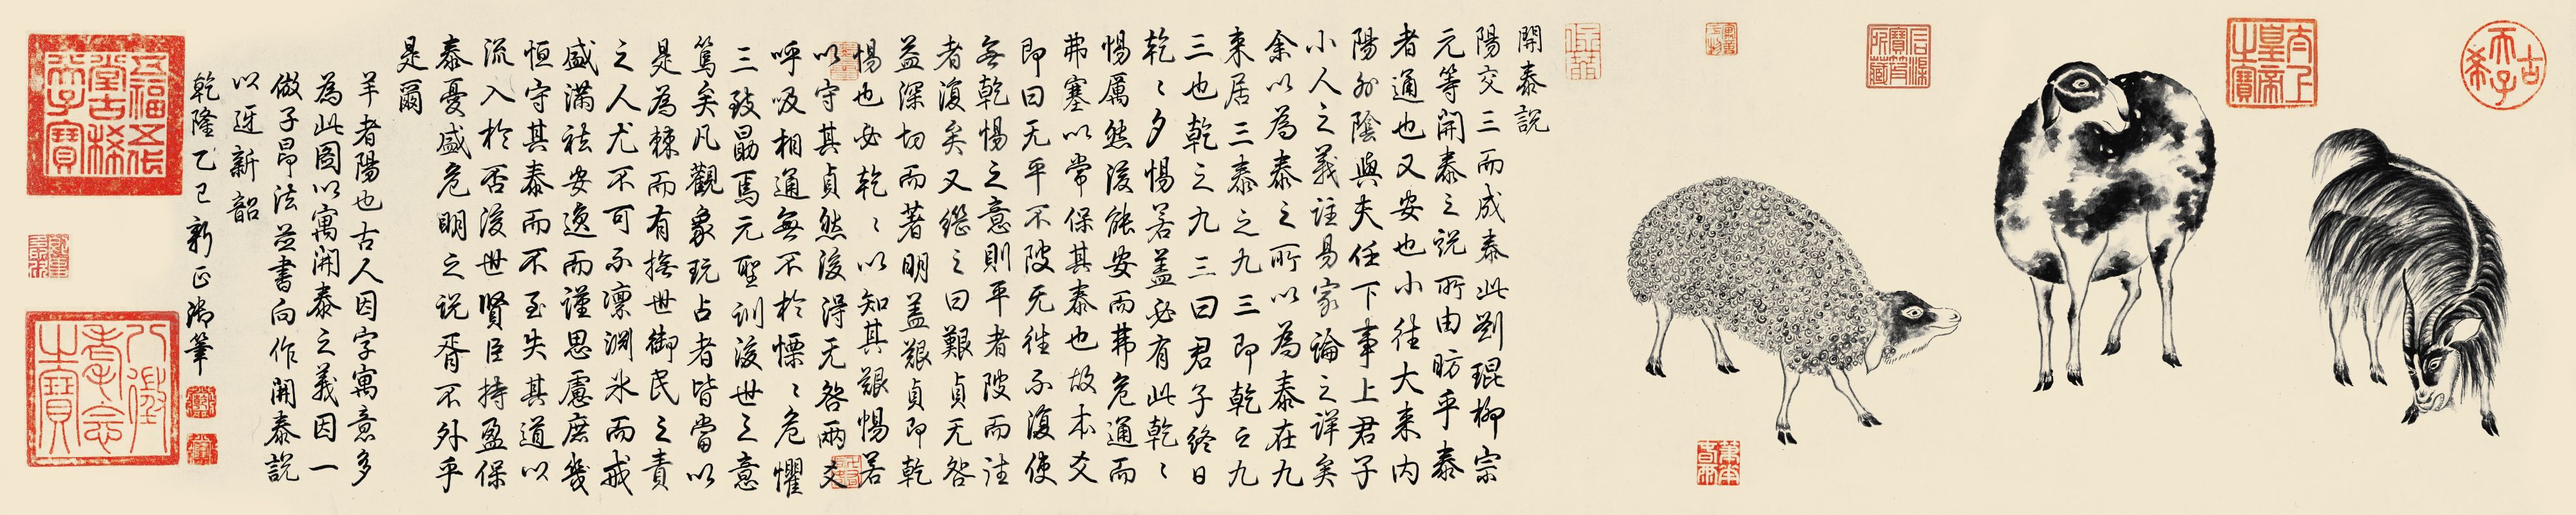 古稀天子
太上皇帝之寶
石渠寶笈所藏
開泰說
陽交三而成泰此劉琨柳宗
元等開泰之說所由昉乎泰
者通也又安也小往大來內
陽外陰與夫任下事上君子
小人之義註易家論之詳矣
余以為泰之所以為泰在九
來居三泰之九三即乾之九
三也乾之九三曰君子終日
乾〻夕惕若蓋必有此乾〻
惕厲然後能安而弗危通而
弗塞以常保其泰也故本爻
即曰无平不陂无往不復使
無乾惕之意則平者陂而往
者復矣又繼之曰艱貞无咎
益深切而著明蓋艱貞即乾
惕也必乾〻以知其艱惕若
以守其貞然後得无咎兩爻
呼吸相通無不於慄〻危懼
三致勗焉元聖訓後世之意
篤矣凡觀象玩占者皆當以
是為棘而有撫世御民之責
之人尤不可不凜淵冰而戒
盛滿祛安逸而謹思慮庶幾
恒守其泰而不至失其道以
流入於否後世賢臣持盈保
泰憂盛危明之說胥不外乎
是爾
羊者陽也古人因字寓意多
為此圖以寓開泰之義因一
倣子昂法並書向作開泰說
以迓新韶
乾隆乙巳新正御筆
五福五代堂古稀天子寶
八徵耄念之寶